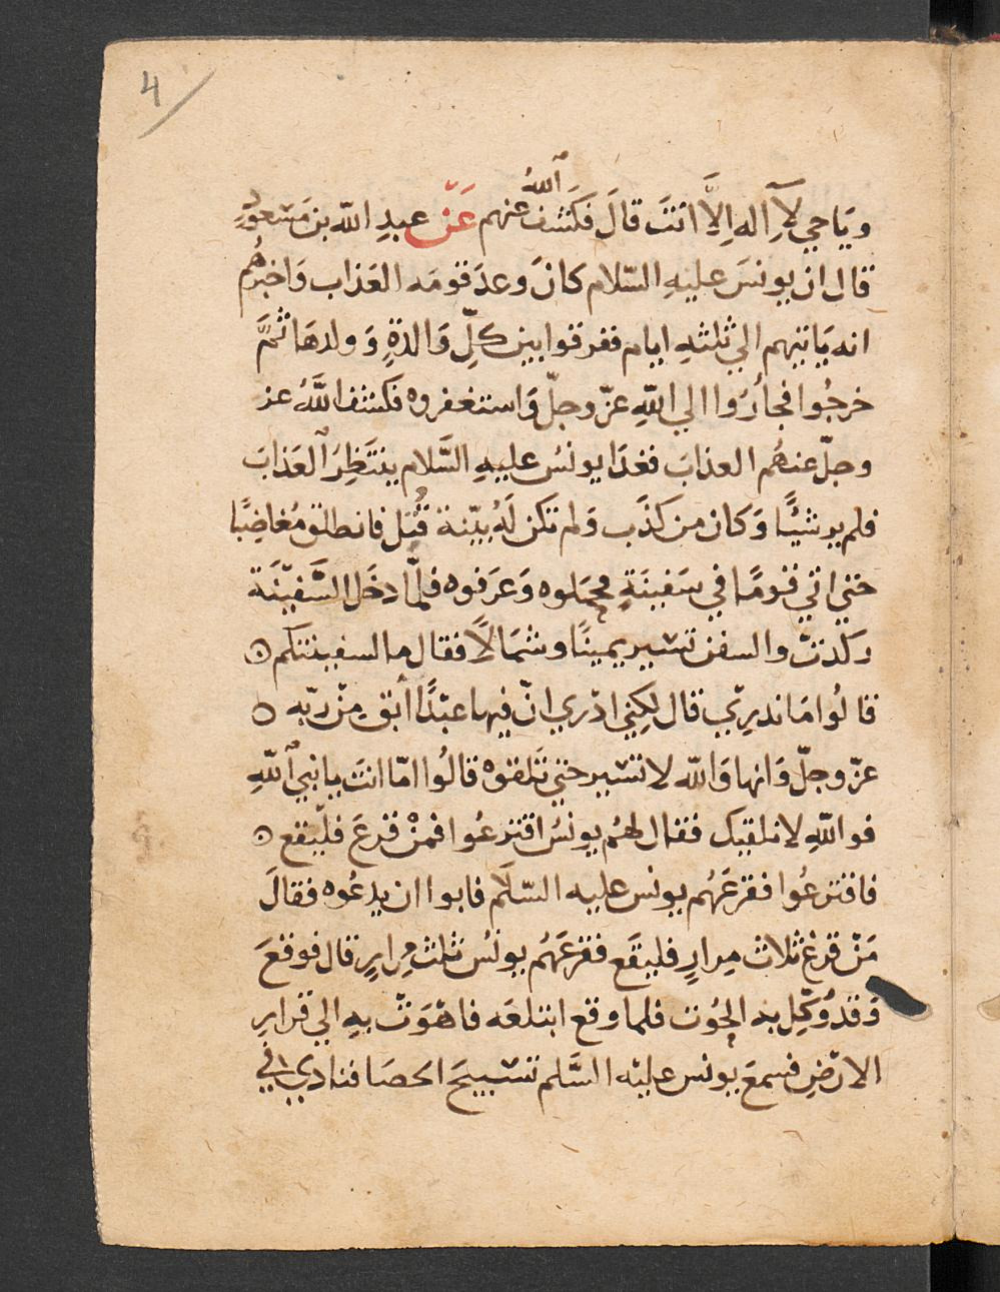 4
الله
وَيَا حي لآ اله اِلَّا انتَ قالَ فكَشف عنهم عَنْ عبدِ الله بن مَسْعودٍ
قال ان يونسَ عليهِ السّلام كانَ وعدَ قومَه العَذاب وَاخبرَهُم
انه يَاتيهم الي ثلثهِ ايام ففرقوا بين كلِّ وَالدةٍ وَ ولدهَا ثمَّ
خرجُوا فجأرُوا الي اللهِ عزّ وجلّ وَاستغفروه فكشف اللَّهُ عز
وجلّ عنهُم العذابَ فغدَا يونسُ عليهِ السَّلام ينتَظِرُ العَذابَ
فلم ير شيئًا وَكان من كذَب وَلم تكن لَهُ بيّنة قُتِل فانطلق مُغاضِبًا
حتي اتي قومًا في سَفينَةٍ فحمَلوه وَعَرَفوه فلمَّا دخَل السَّفيْنَة
ركدتْ والسفن تسير يمينًا وشمَالًا فقال ما لسفينتكم ه
قالُوا مَا ندرِي قال لكِني ادْري انّ فيها عبْدًا ابق مِنْ ربّه ه
عزّ وجلّ وَانها وَالله لا تسير حتي تَلقوْه قالُوا امّا انتَ يا نبي اللهِ
فو اللهِ لا نلقيك فقال لهُم يونسُ اقترعُوا فمنْ قرعَ فلْيقع ه
فاقترعُوا فقرعَهُم يونس عليه السّلَام فابوا ان يدعُوه فقالَ
مَنْ قرعَ ثلاث مِرارٍ فليقَع فقرعَهُم يونسُ ثلثَ مِرارٍ قال فوقعَ
وَقدْ وُكِّل به الحُوت فلما وقع ابتلعَه فاهْوَتْ بهِ الي قرارِ
الارْضِ فسمعَ يونس عليْه السَّلم تسْبيحَ الحصَا فنادي في